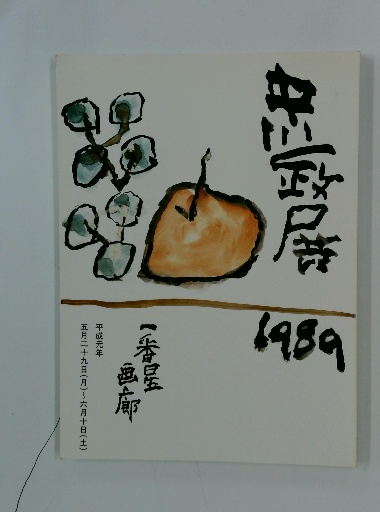 1989
一番星
画廊
平成元年
五月二十九日(月)~六月十日(土)